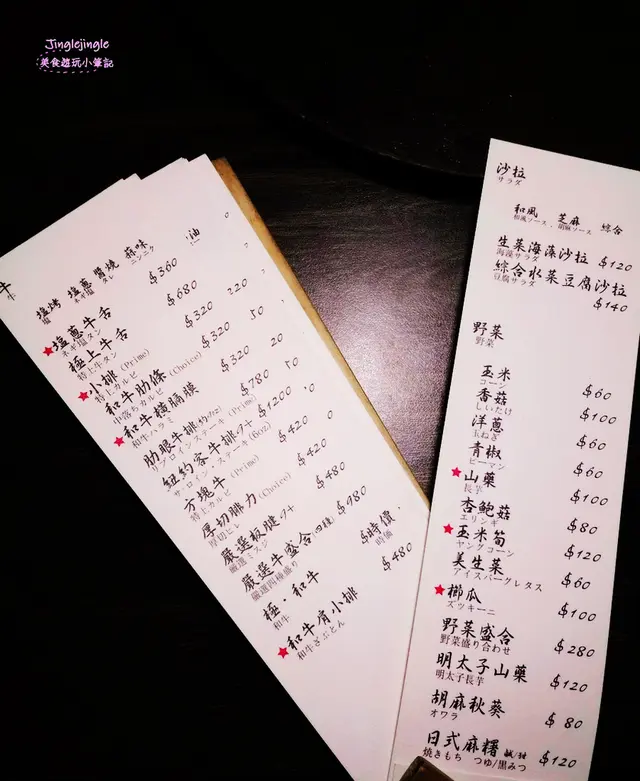 Jinglejingle
美食遊玩小筆記
牛
牛
塩烤 塩蔥 醬燒 蒜味
塩 ネギ塩 タレ ニンニク
★塩蔥牛舌 $360
ネギ塩タン
極上牛舌 $680
特上牛タン
★小排(Prime) $320
特上カルビ
和牛肋條(Choice) $320
中落ちカルビ
★和牛橫膈膜 $320
和牛ハラミ
肋眼牛排 $780
リブロインステーキ(Prime)
紐約客牛排 $1200
サーロイン・ステーキ(6oz)
方塊牛(Prime) $420
特上カルビ
厚切腓力(Choice) $420
厚切ヒレ
嚴選板腱 $480
厳選ミスジ
嚴選牛盛合(四種) $980
厳選四種盛り
極·和牛 $時價
和牛 時価
★和牛肩小排 $480
和牛ざぶとん
沙拉
サラダ
和風 芝麻 綜合
和風ソース、胡麻ソース
生菜海藻沙拉 $120
海藻サラダ
綜合水菜豆腐沙拉
豆腐サラダ
$140
野菜
野菜
玉米 $60
コーン
香菇 $100
しいたけ
洋蔥 $60
玉ねぎ
青椒 $60
ピーマン
★山藥 $100
長芋
杏鮑菇 $80
エリンギ
★玉米筍 $120
ヤングコーン
美生菜 $60
アイスバーグレタス
★櫛瓜 $100
ズッキーニ
野菜盛合 $280
野菜盛り合わせ
明太子山藥 $120
明太子長芋
胡麻秋葵 $80
オクラ
日式麻糬 鹹/甜 $120
焼きもち つゆ/黒みつ